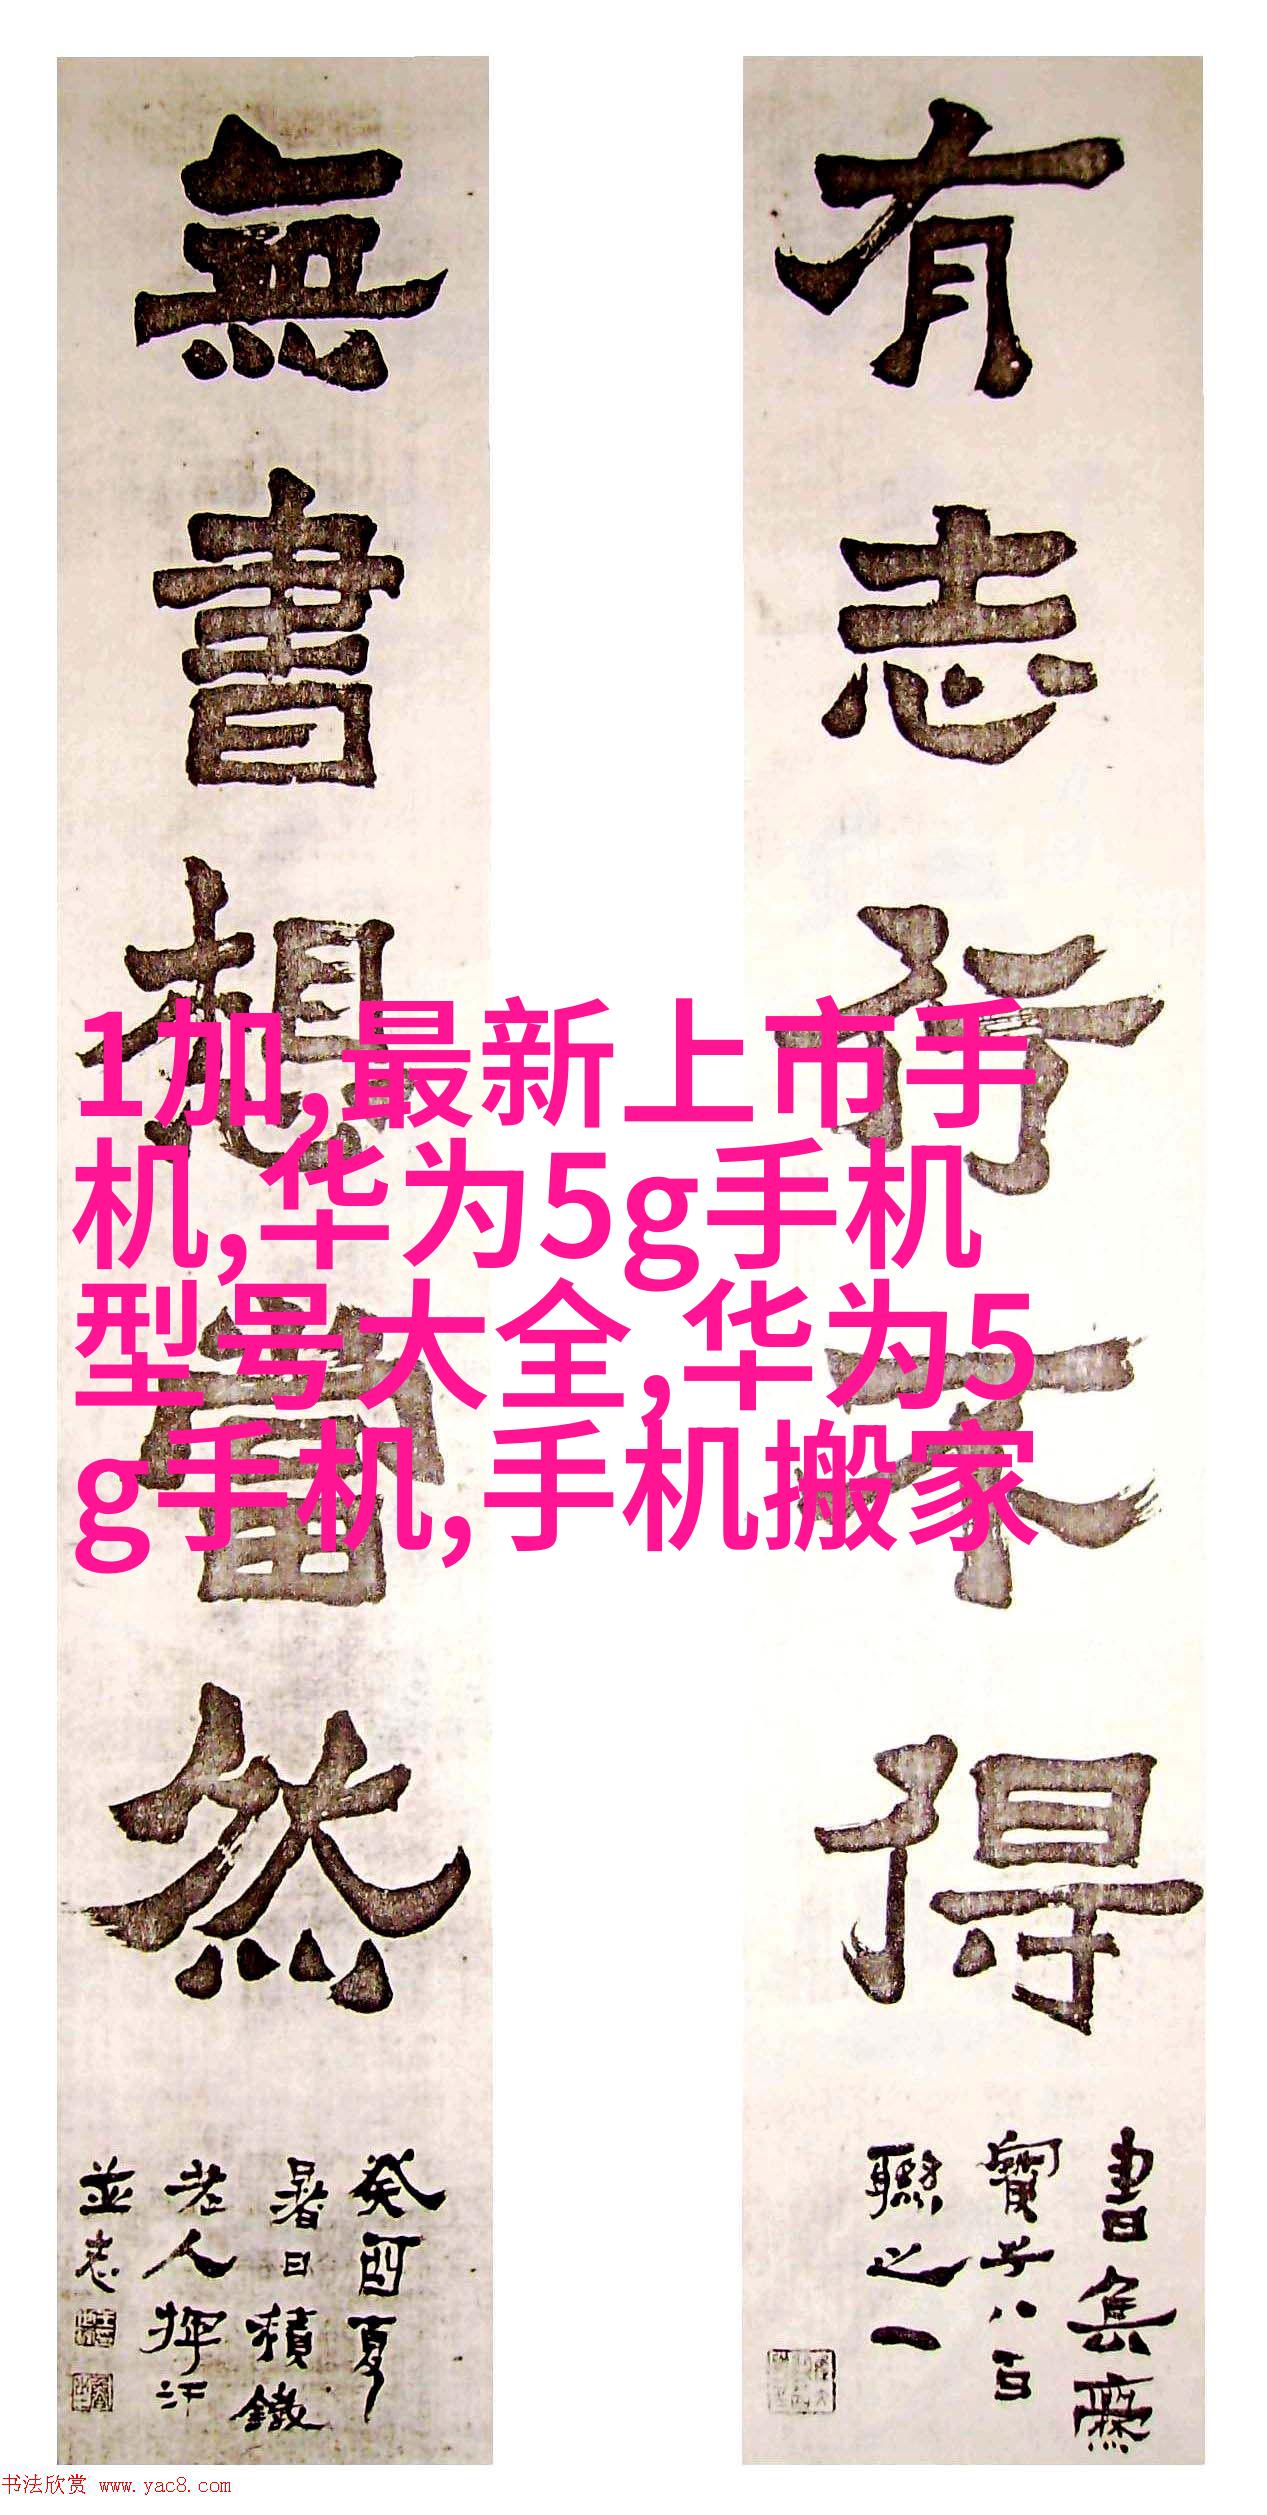 有志行不得
書集齋
寶子八百
聯之一
無書想當然
癸酉夏
暑日積鐵
老人揮汗
並志
1加,最新上市手
机,华为5g手机
型号大全,华为5
g手机,手机搬家
书法欣赏 www.yac8.com